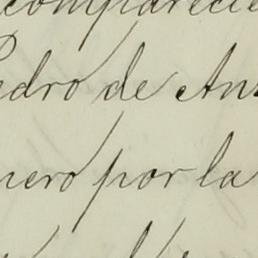 comparecie
Pedro de An
nero por la